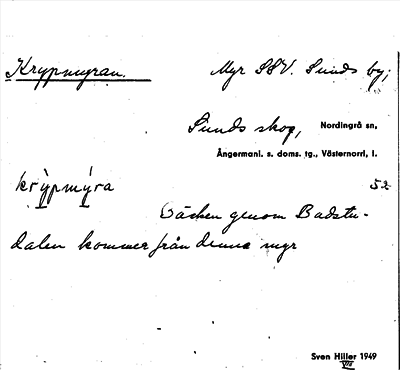 Krypmyran. Myr SSV. Sunds by;
Sunds skog, Nordingrå sn,
Ångermanl. s. doms. tg., Västernorrl. l.
krỳpmýra 52
Bäcken genom Badstu-
dalen kommer från denna myr
Sven Hiller 1949
VIII